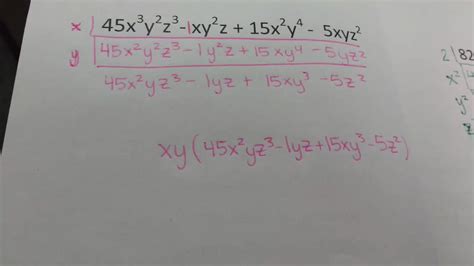 x 45x³y²z³-1xy²z + 15x²y⁴ - 5xyz²
y 45x²y²z³ - 1y²z + 15xy⁴ - 5yz²
45x²yz³ - 1yz + 15xy³ - 5z²
xy(45x²yz³-1yz+15xy³-5z²)
2 82
x²
y²
z